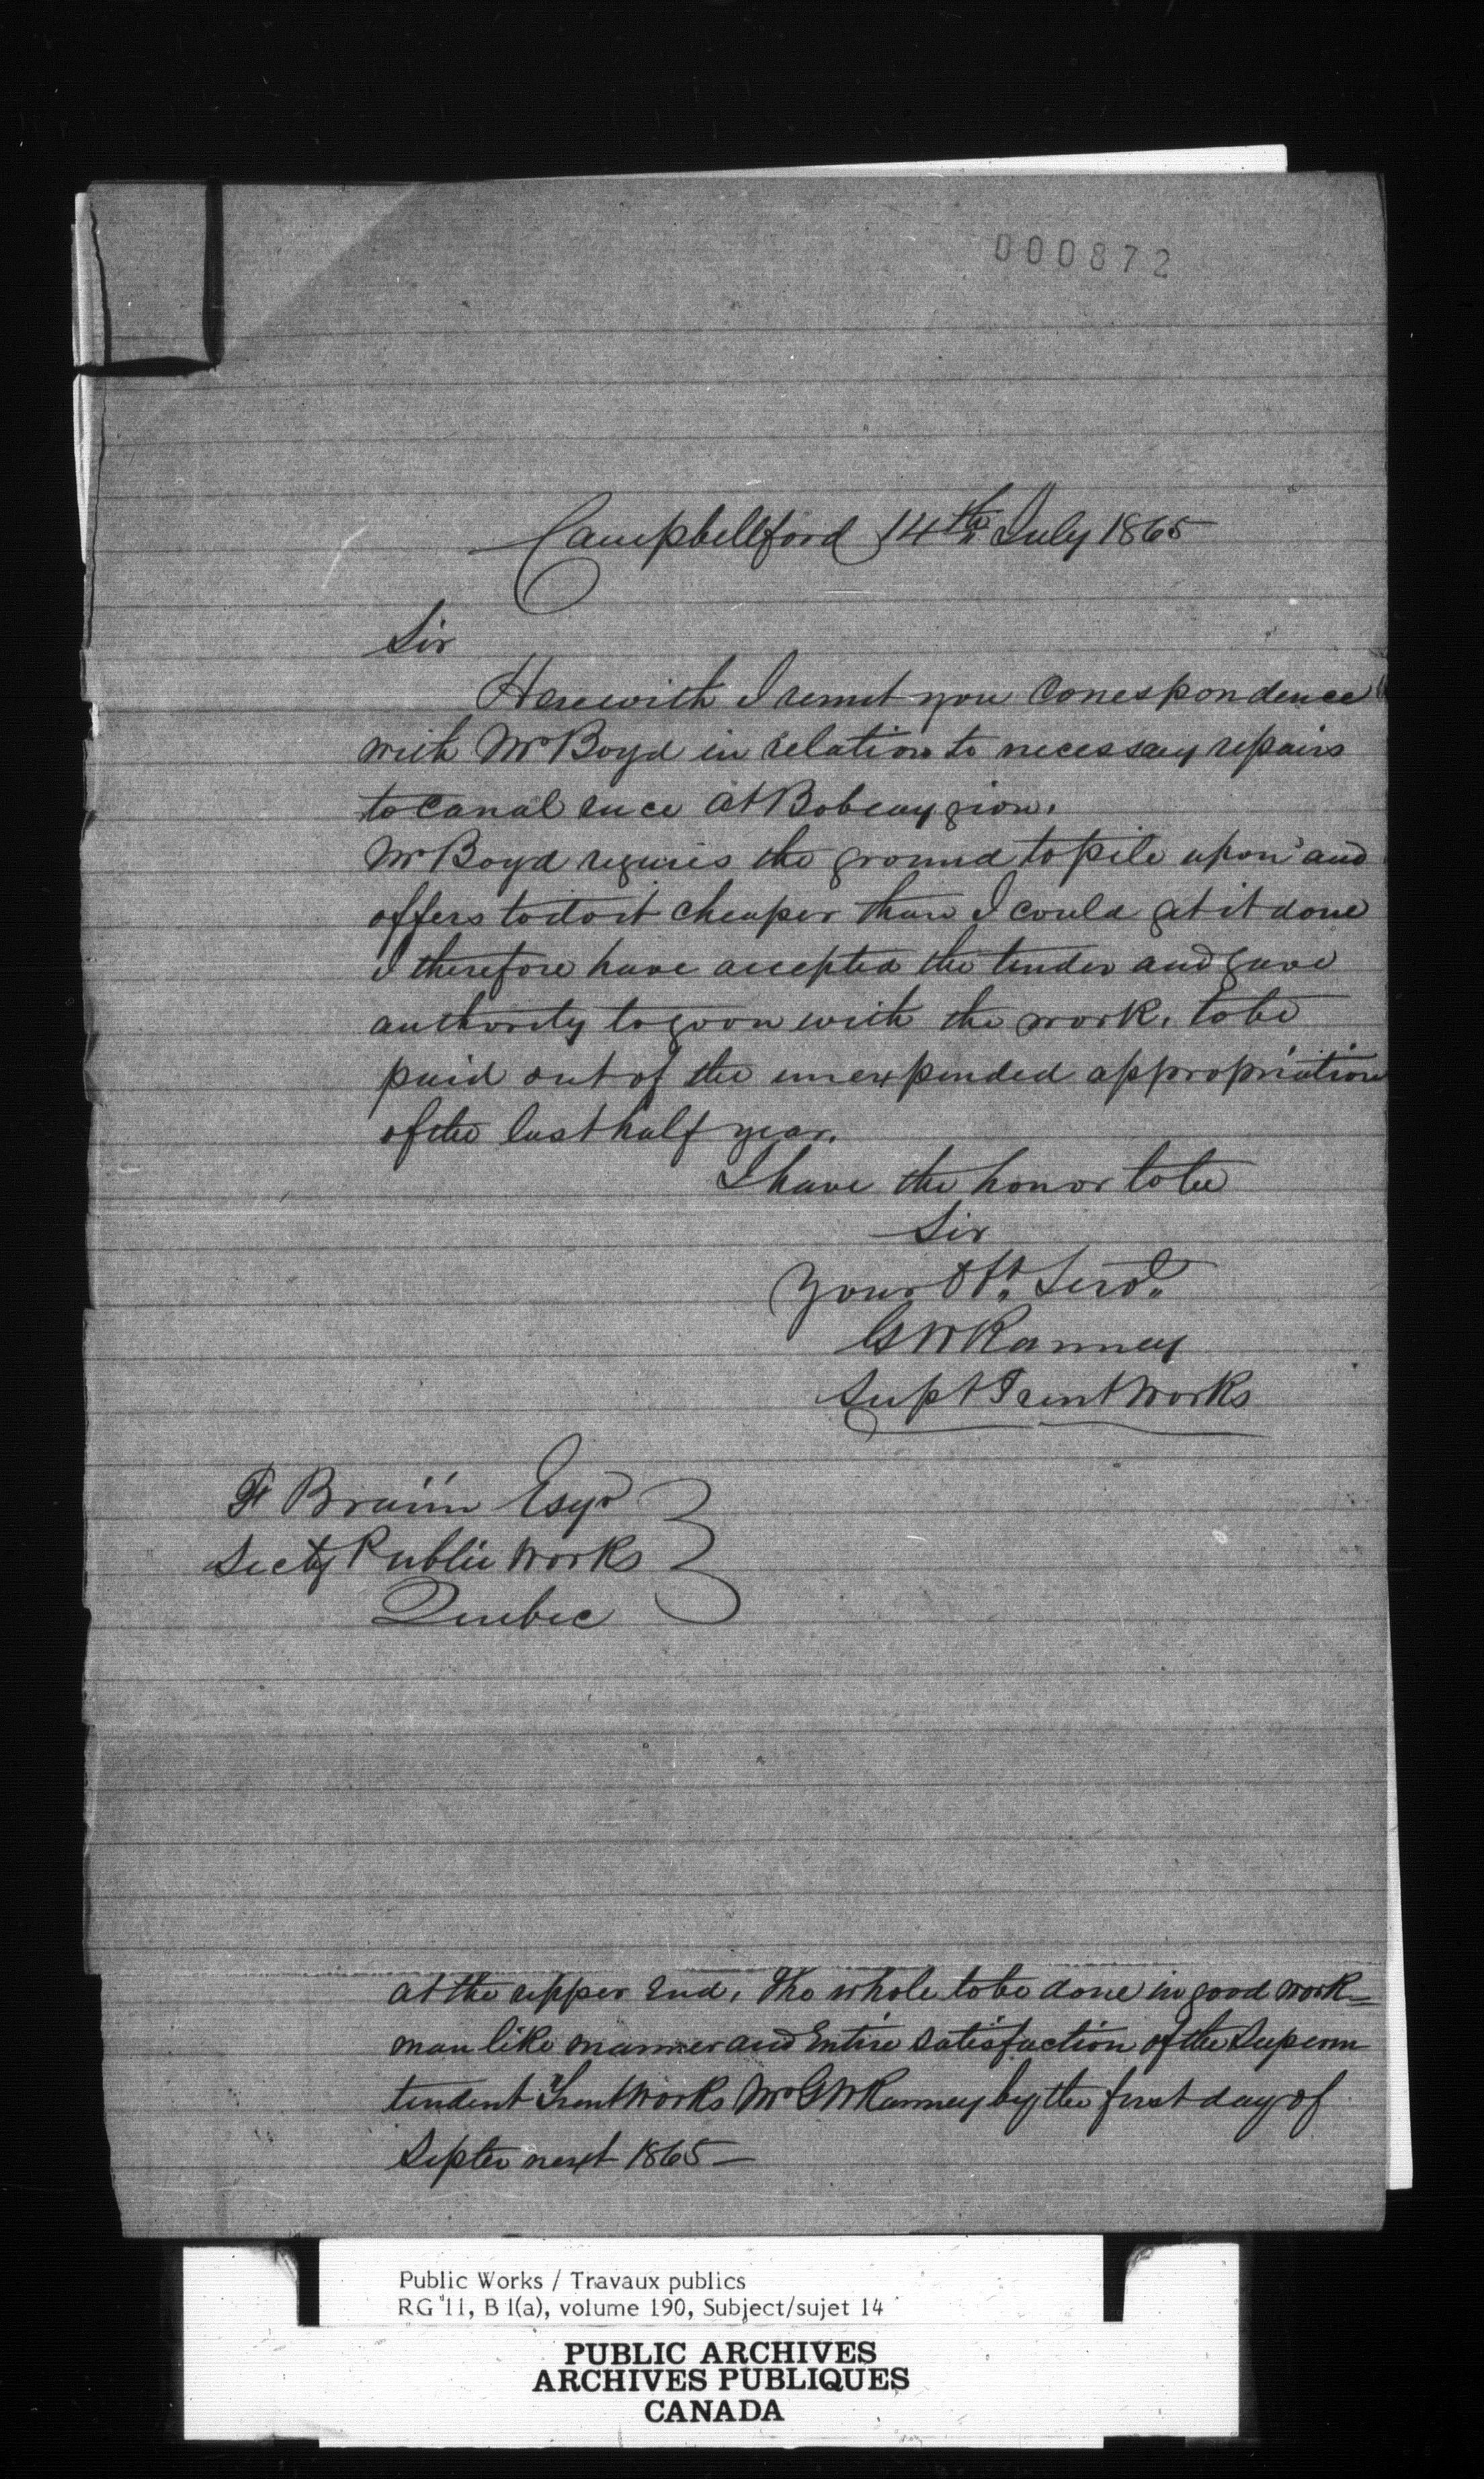 000872
Campbellford 14th July 1865
Sir
Herewith I remit you Correspondence
with Mr Boyd in relation to necessary repairs
to Canal race at Bobcaygion.
Mr Boyd requires the ground to pile upon and
offers to do it cheaper than I could get it done
I therefore have accepted the tender and gave
authority to go on with the work, to be
paid out of the unexpended appropriation
of the last half year.
I have the honor to be
Sir
Your Ob. Servt.
G W Ranney
Supt Trent Works
F Braün Esqr
Secty Public Works
Quebec
at the upper End, the whole to be done in good work=
man like manner and Entire satisfaction of the Superin
tendent Trent Works Mr G W Ranney by the first day of
Septer next 1865 —
Public Works / Travaux publics
RG 11, B 1(a), volume 190, Subject/sujet 14
PUBLIC ARCHIVES
ARCHIVES PUBLIQUES
CANADA